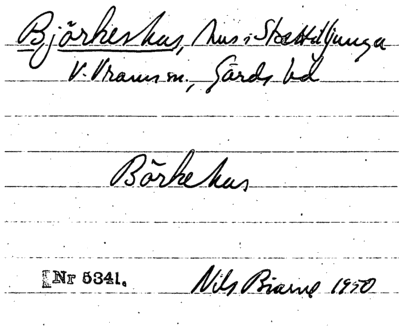 Björkeshus, hus i Skättiljunga
V. Vram sn., Gärds hd
Börkehus
Nr 5341. Nils Bjarne 1950